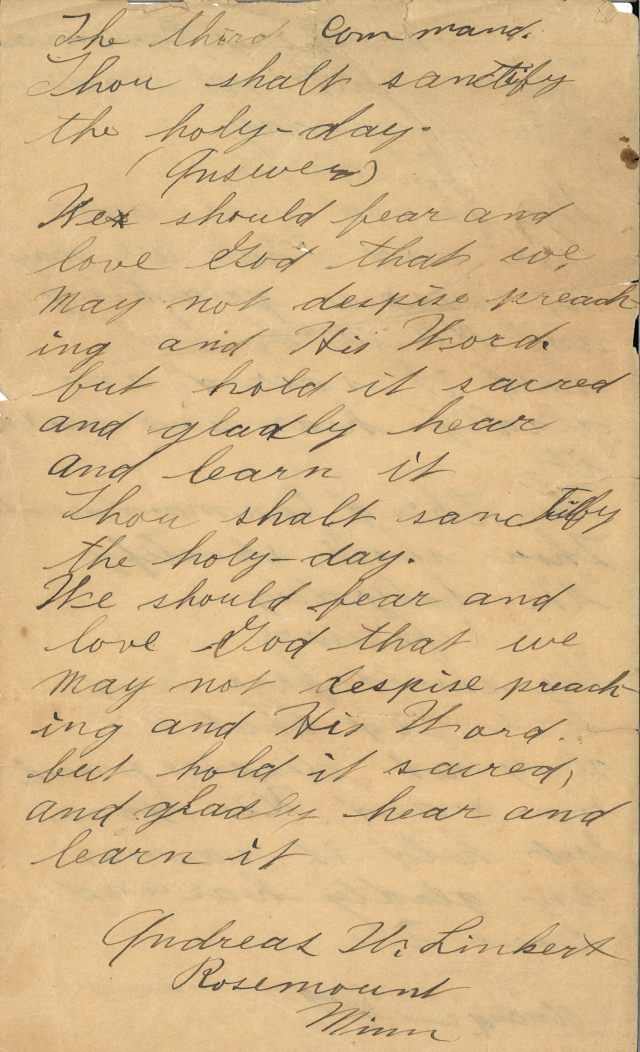 The third command.
Thou shalt sanctify
the holy-day.
(Answer)
We should fear and
love God that we
may not despise preach
ing and His Word.
but hold it sacred
and gladly hear
and learn it
Thou shalt sanctify
the holy-day.
We should fear and
love God that we
may not despise preach
ing and His Word.
but hold it sacred,
and gladly hear and
learn it
Andreas W. Linkert
Rosemount
Minn